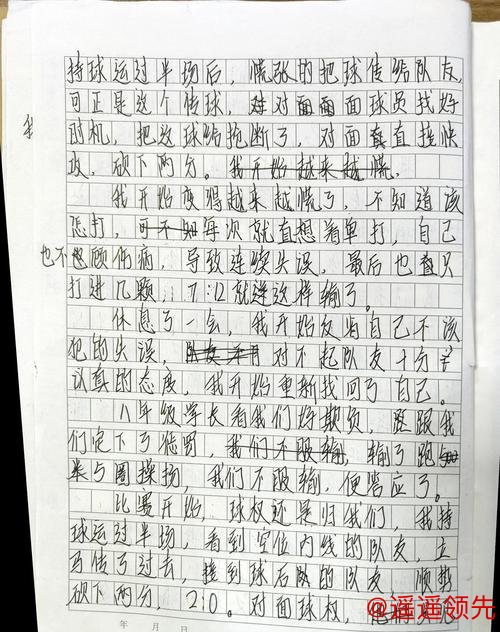 持球运过半场后，慌张的把球传给队友，
可正是这个传球，对面面球员找好
我
时机，把这球给抢断了，对面直接快
攻，砍下两分。我开始越来越慌，
我开始变得越来越慌了，不知道该
怎打，可不知每次就直想着单打，自己
也不顾伤病，导致连续失误，最后也只
打进几颗，7:12就这样输了。
休息了一会，我开始反省自己不该
犯的失误，对不起队友十分
认真的态度，我开始重新找回了自己。
八年级学长看我们好欺负，跟我
们定下了惩罚，我们不服输，输了跑
5圈操场，我们不服输，便答应了。
比赛开始，球权还是归我们，我持
球运过半场，看到空位内线的队友，立
马传了过去，接到球后的队友，顺势
砍下两分，2:0。对面球权，
年 月 日
@遥遥领先